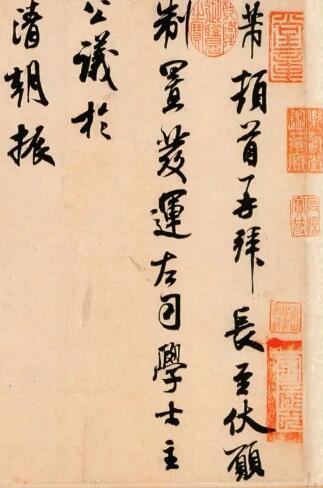 芾頓首再拜長至伏願
制置發運左司學士主
公議於
清朝振